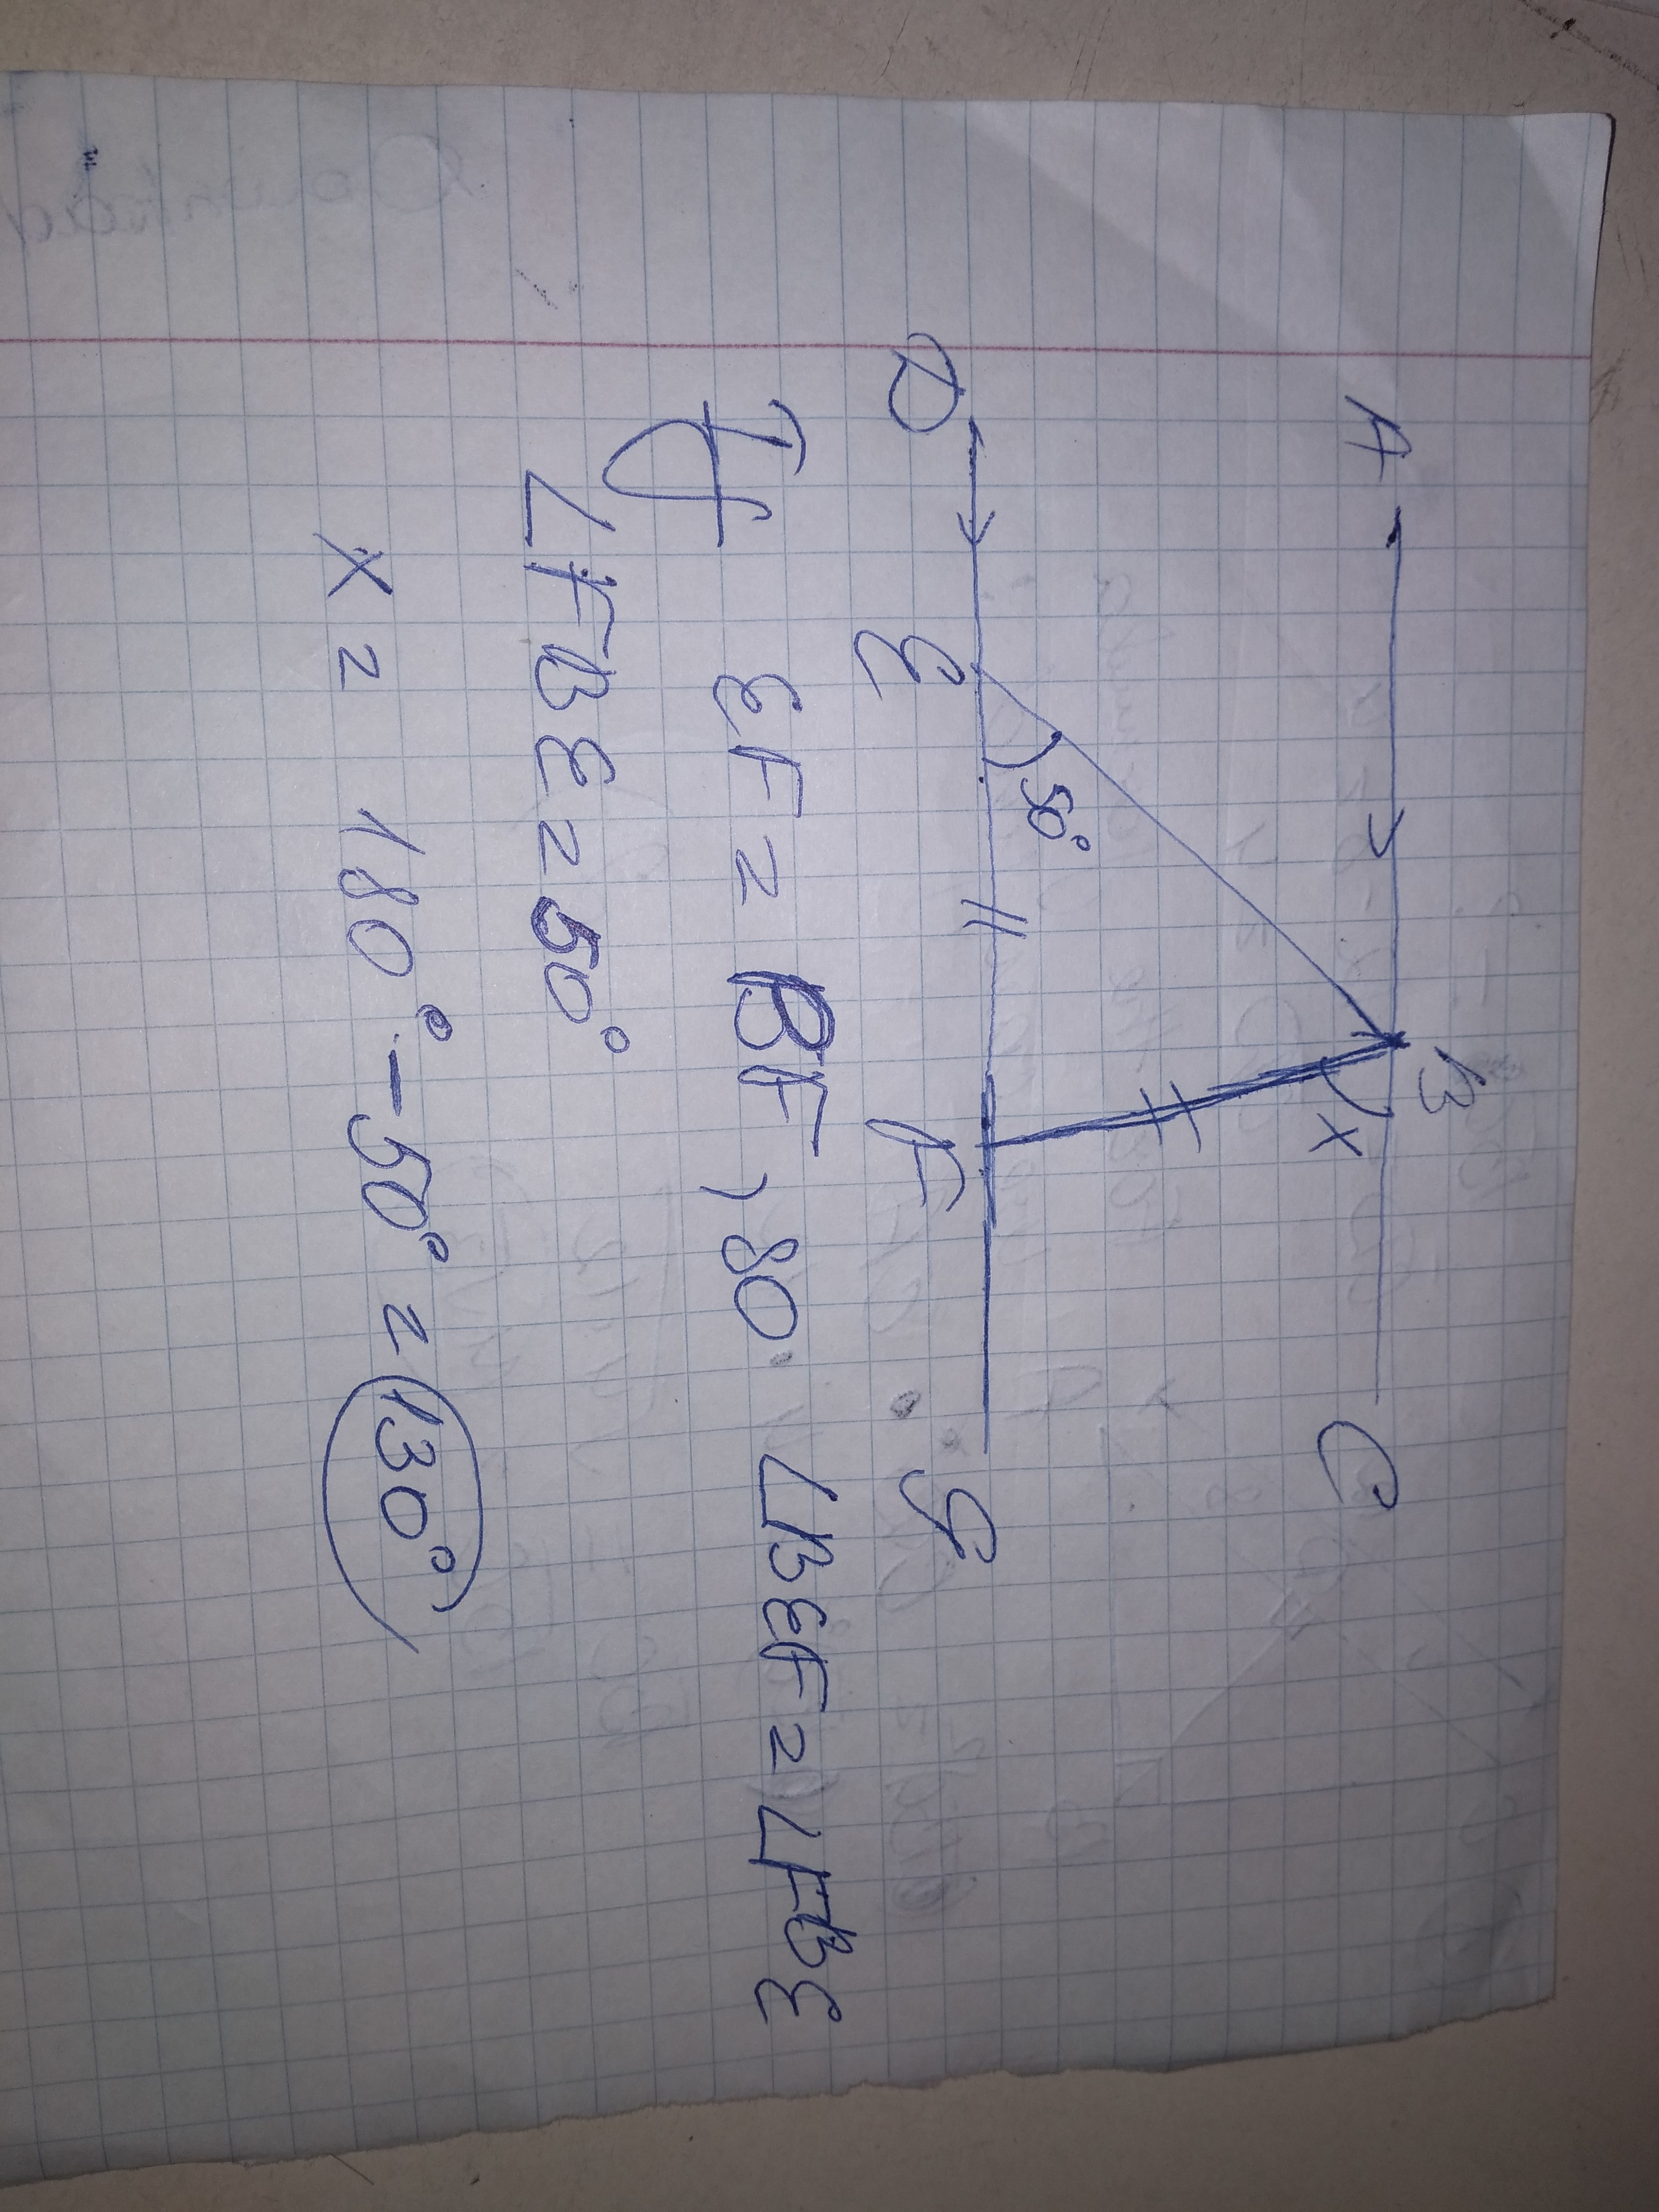 A B C
x
50°
D E F G
If EF = BF, so ∠BEF = ∠FBE
∠FBE = 50°
x = 180° - 50° = 130°